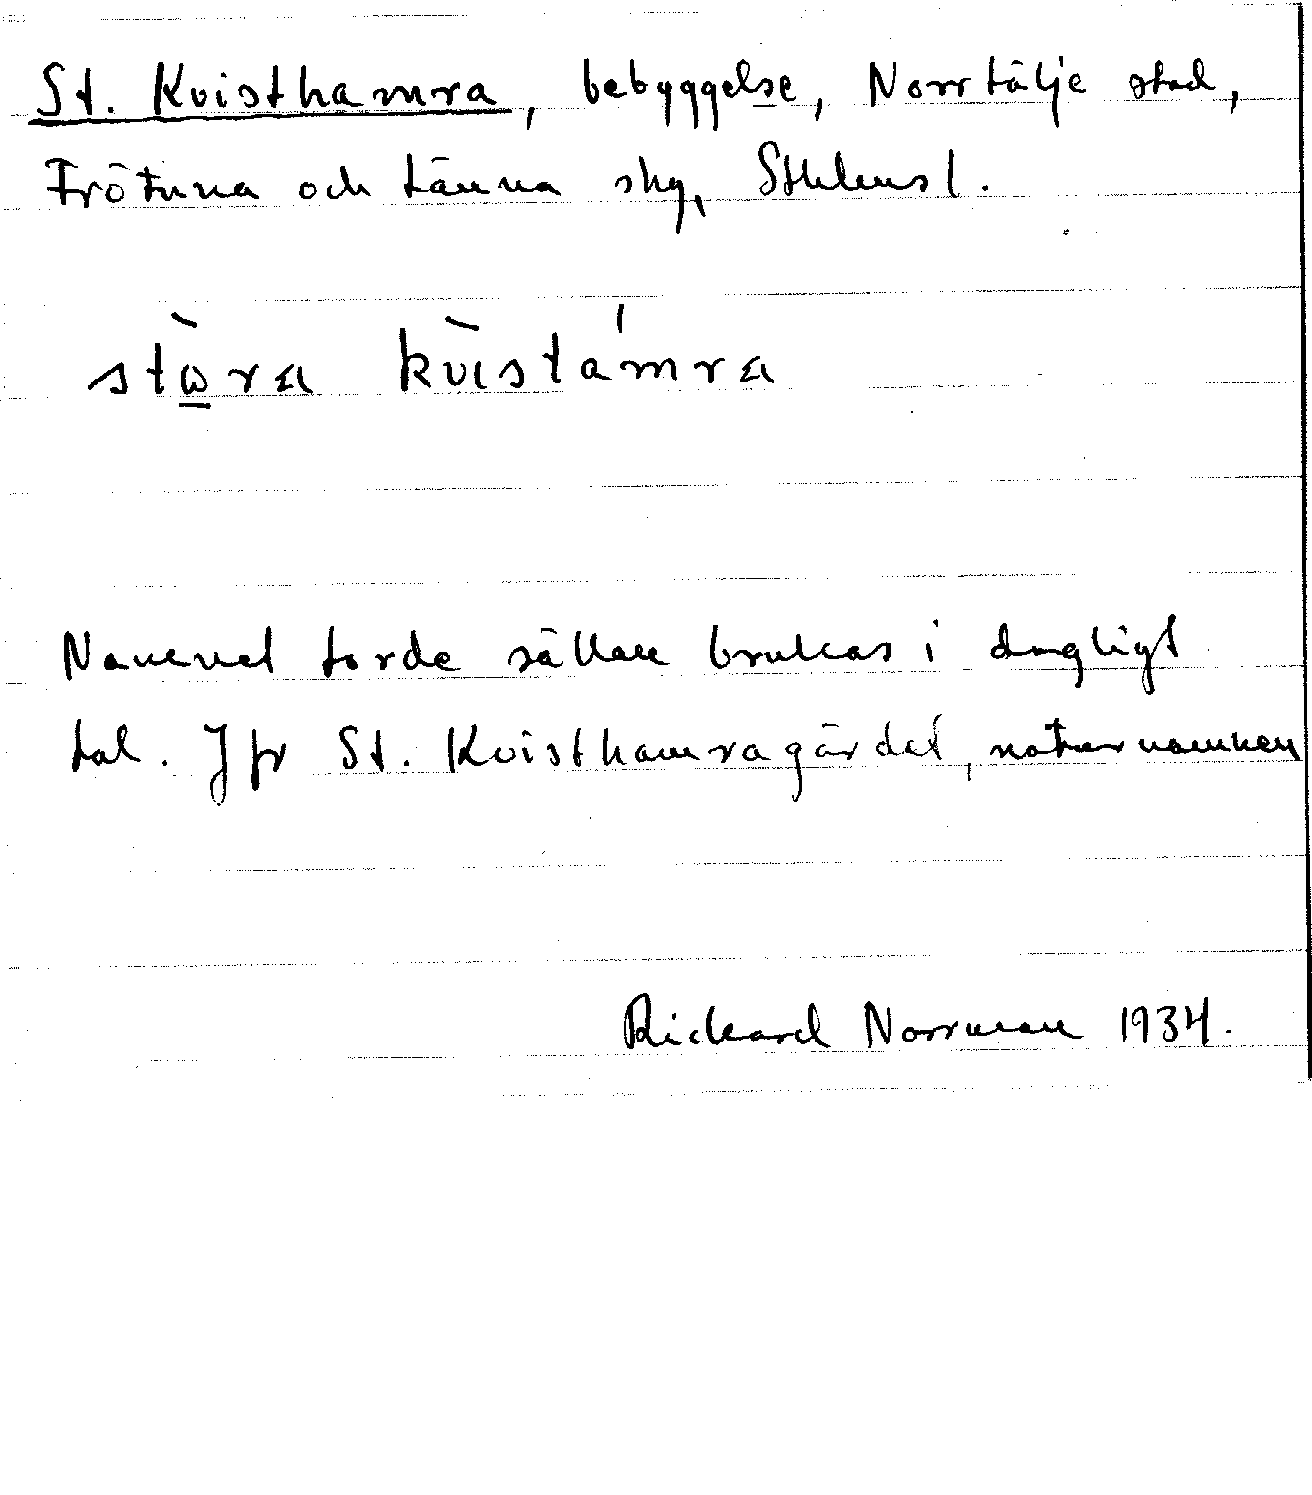 St. Kvisthamra, bebyggelse, Norrtälje stad,
Frötuna och Länna skg, Sthlmsl.
stωra kvistamra
Namnet torde sällan brukas i dagligt
tal. Jfr St. Kvisthamragärdet, naturnamnen
Rickard Norrman 1934.